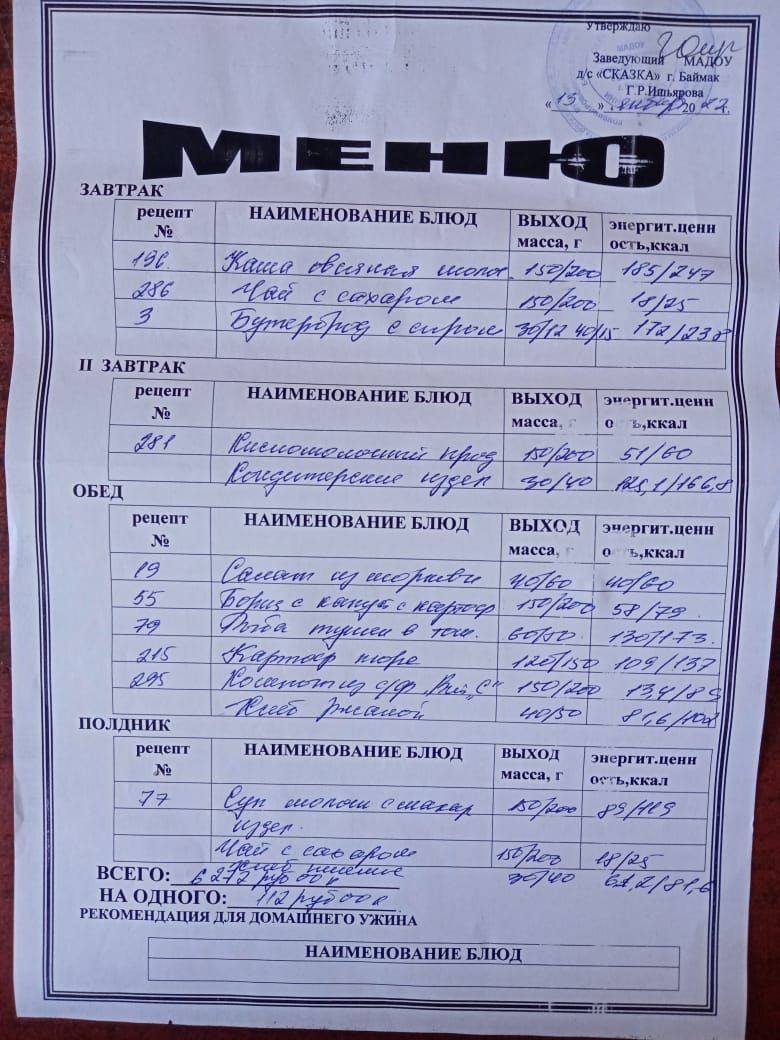 Утверждаю
Заведующий МАДОУ
д/с «СКАЗКА» г. Баймак
Г.Р.Ишьярова
« 13 » январ 20 22 г.
МЕНЮ
ЗАВТРАК
рецепт № НАИМЕНОВАНИЕ БЛЮД ВЫХОД масса, г энергит.ценн ость,ккал
196 Каша овсяная молоч. 150/200 185/247
286 Чай с сахаром 150/200 18/25
3 Бутерброд с сыром 30/12 40/15 172/238
II ЗАВТРАК
рецепт № НАИМЕНОВАНИЕ БЛЮД ВЫХОД масса, г энергит.ценн ость,ккал
281 Кисломолочный прод 150/200 51/60
Кондитерские издел 30/40 125,1/166,8
ОБЕД
рецепт № НАИМЕНОВАНИЕ БЛЮД ВЫХОД масса, г энергит.ценн ость,ккал
19 Салат из моркови 40/60 40/60
55 Борщ с капуст с картоф 150/200 58/79
79 Рыба тушен в том. 60/80 130/173
215 Картоф пюре 120/150 109/137
295 Компот из с/ф "Вит "С" 150/200
Хлеб ржаной 40/50 81,6/102
ПОЛДНИК
рецепт № НАИМЕНОВАНИЕ БЛЮД ВЫХОД масса, г энергит.ценн ость,ккал
77 Суп молочн с макар 150/200 89/119
издел.
Чай с сахаром 150/200 18/25
хлеб пшенич 30/40 61,2/81,6
ВСЕГО: 6272 руб 00 к
НА ОДНОГО: 112 руб 00 к
РЕКОМЕНДАЦИЯ ДЛЯ ДОМАШНЕГО УЖИНА
НАИМЕНОВАНИЕ БЛЮД